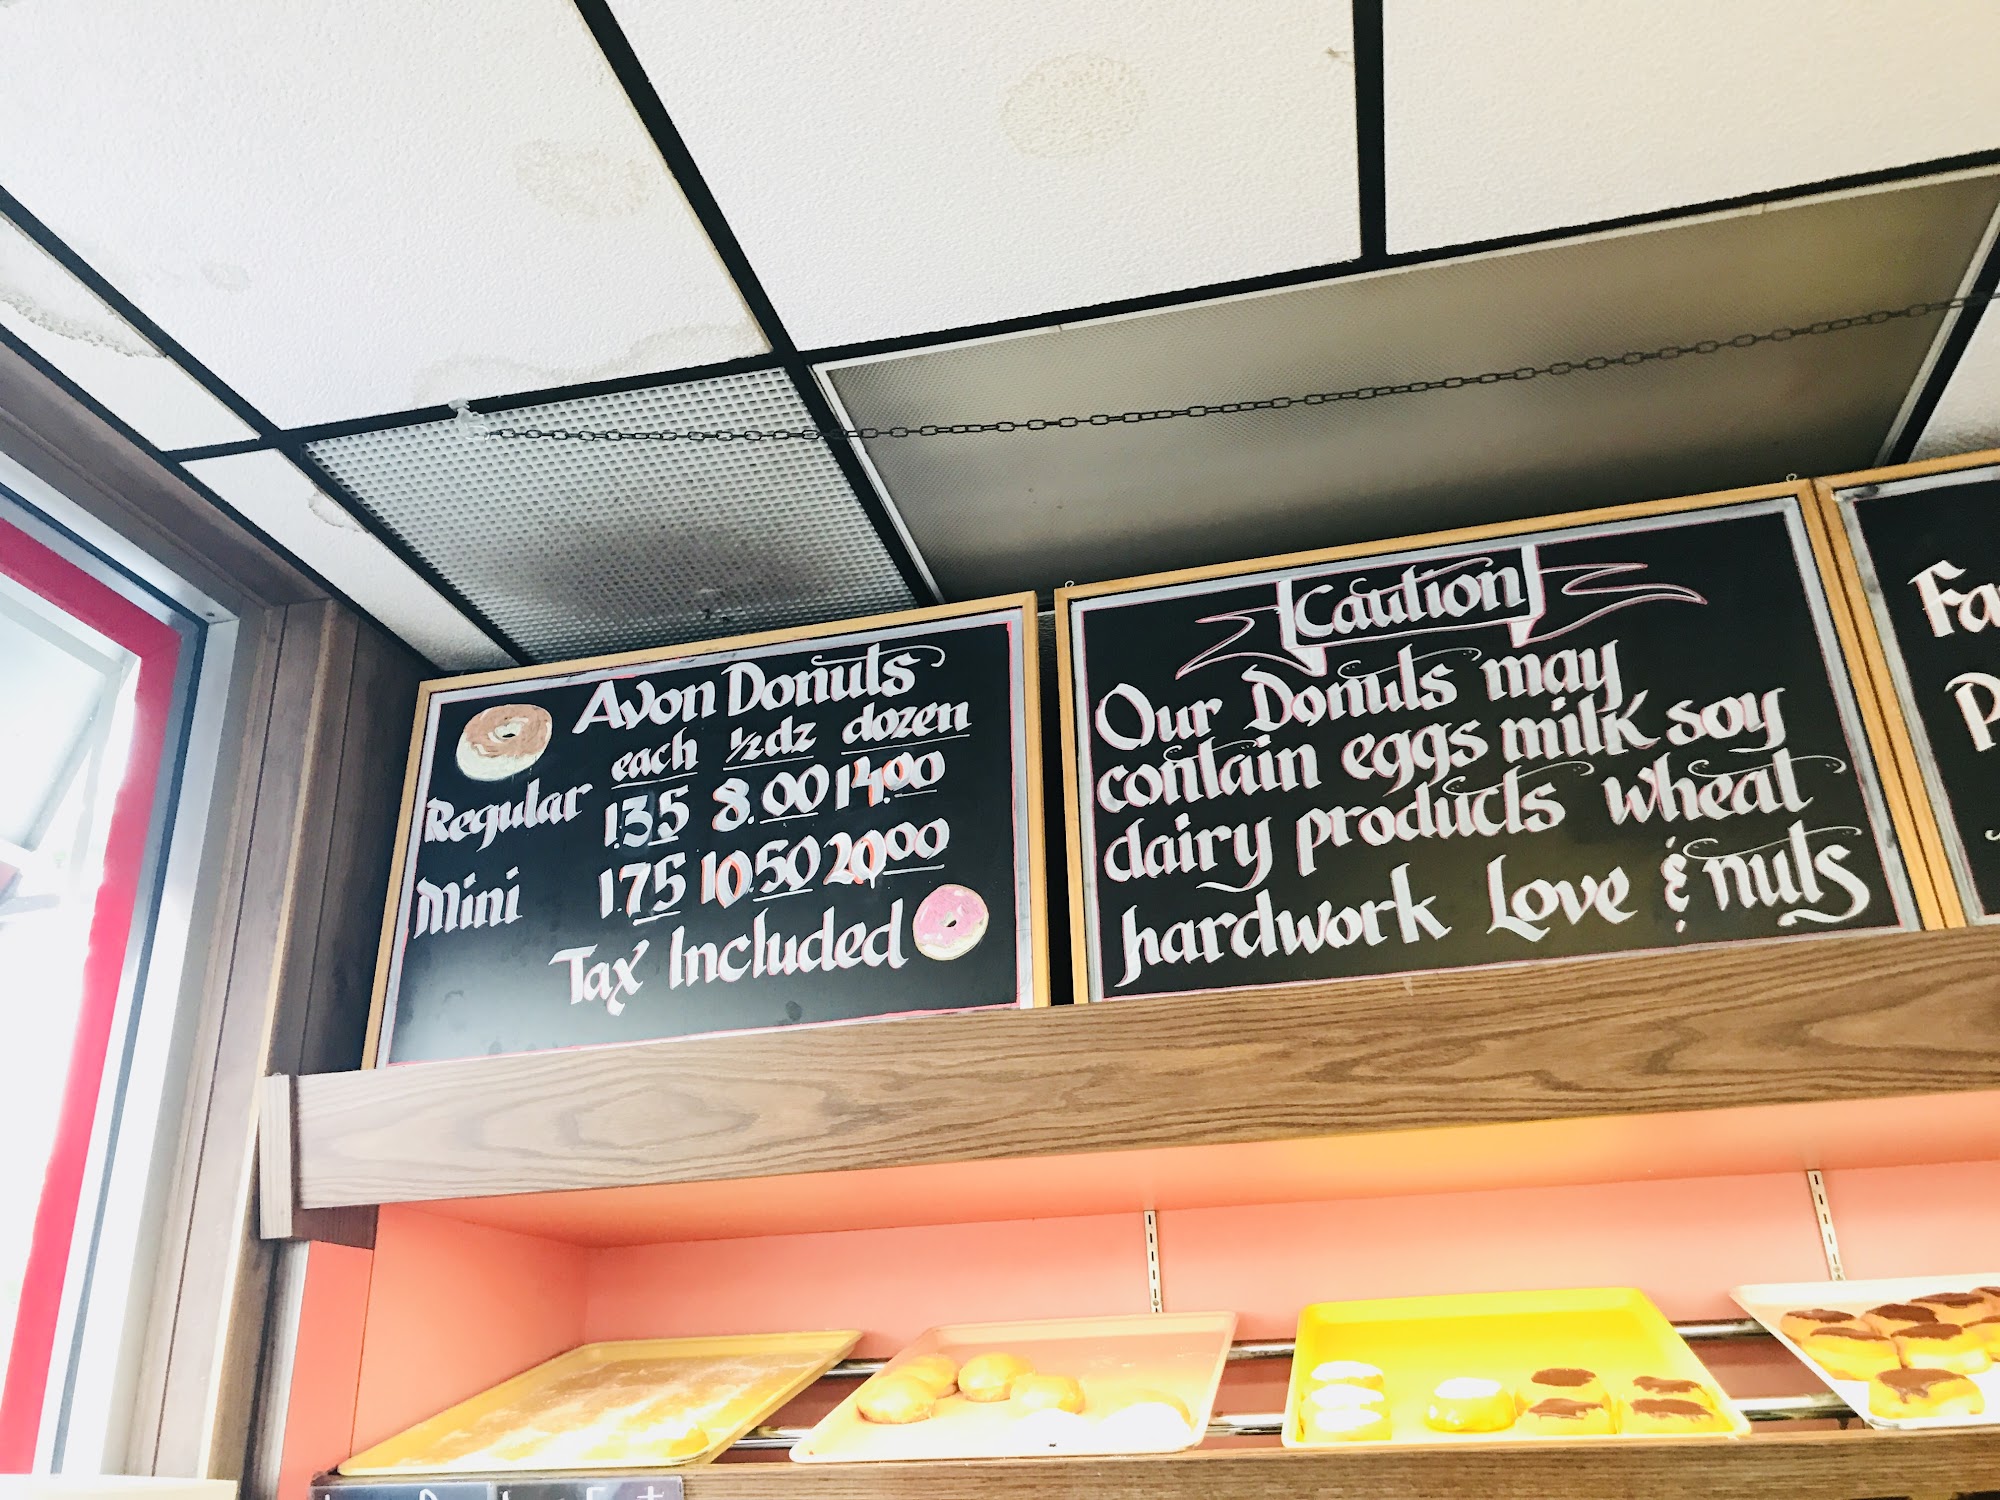 Avon Donuts
each ½dz dozen
Regular 1.35 8.00 14.00
Mini 1.75 10.50 20.00
Tax Included
Caution
Our Donuts may
contain eggs milk soy
dairy products wheat
hardwork Love & nuts
Fa
P